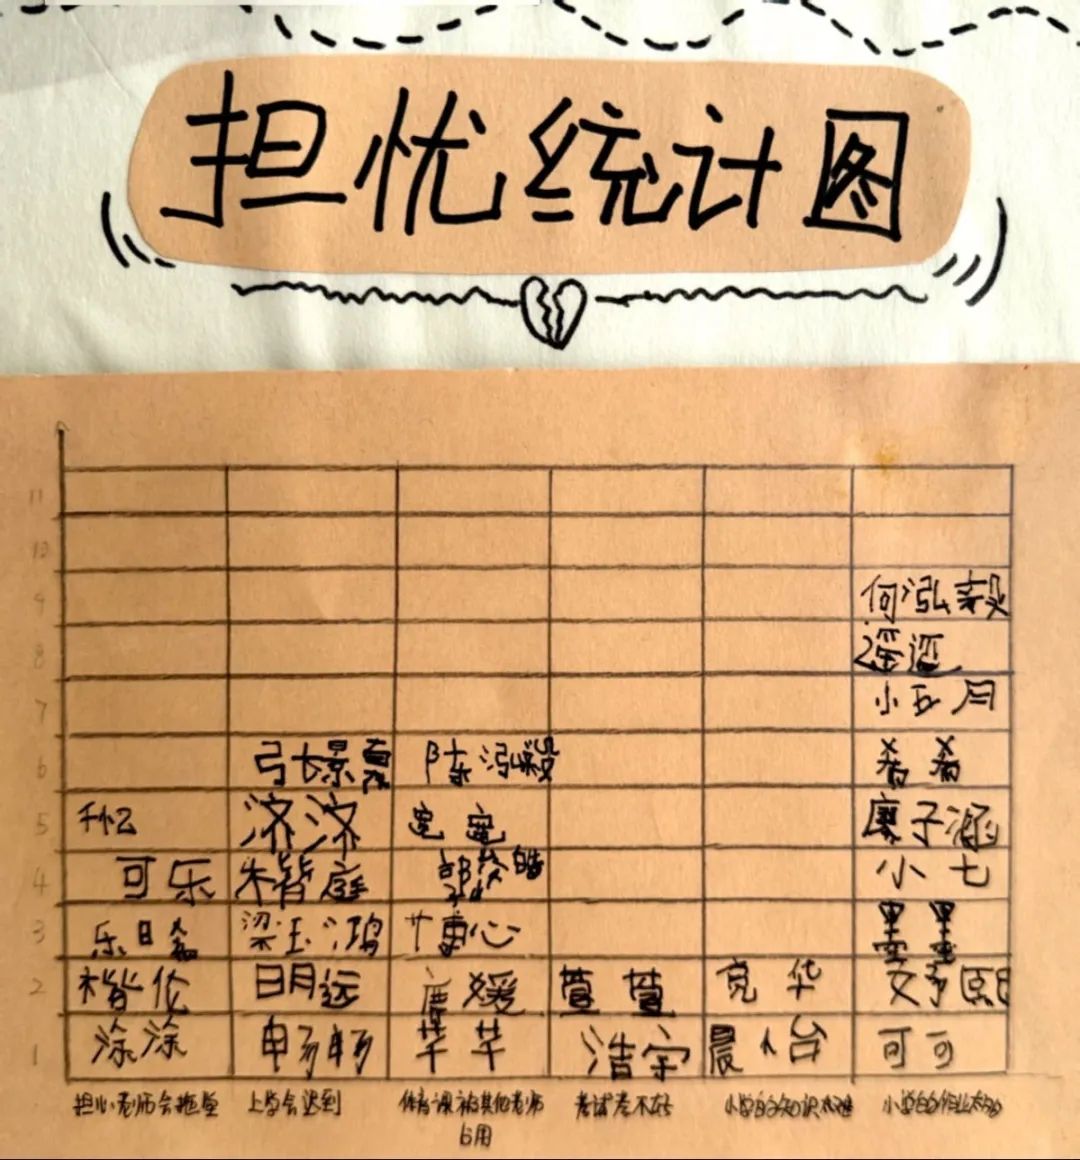 担忧统计图
11
10
9 何泓毅
8 瑶瑶
7 小五月
6 陈泓毅 希希
5 千忪 济济 宽宽 廖子涵
4 可乐 朱皆庭 小七
3 乐日鑫 梁玉鸿 博心 墨墨
2 楷伦 明远 唐媛 萱萱 亮华 文予熙
1 涂涂 畅畅 芊芊 浩宇 晨怡 可可
担心老师会拖堂 上学会迟到 体育课被其他老师 考试考不好 小学的知识太难 小学的作业太多
占用